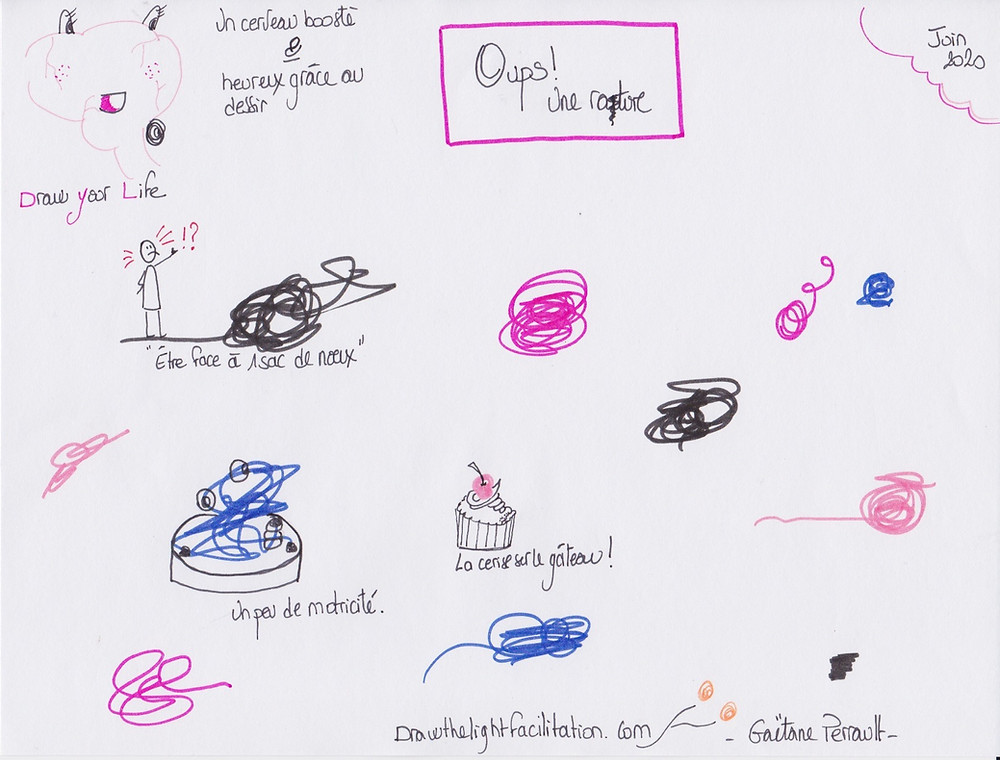 Un cerveau boosté
&
heureux grâce au
dessin
Draw your Life
Oups!
Une rature
Juin
2020
!?
"Être face à 1 sac de nœux"
La cerise sur le gâteau !
Un peu de motricité.
Drawthelightfacilitation.com
- Gaëtane Perrault -